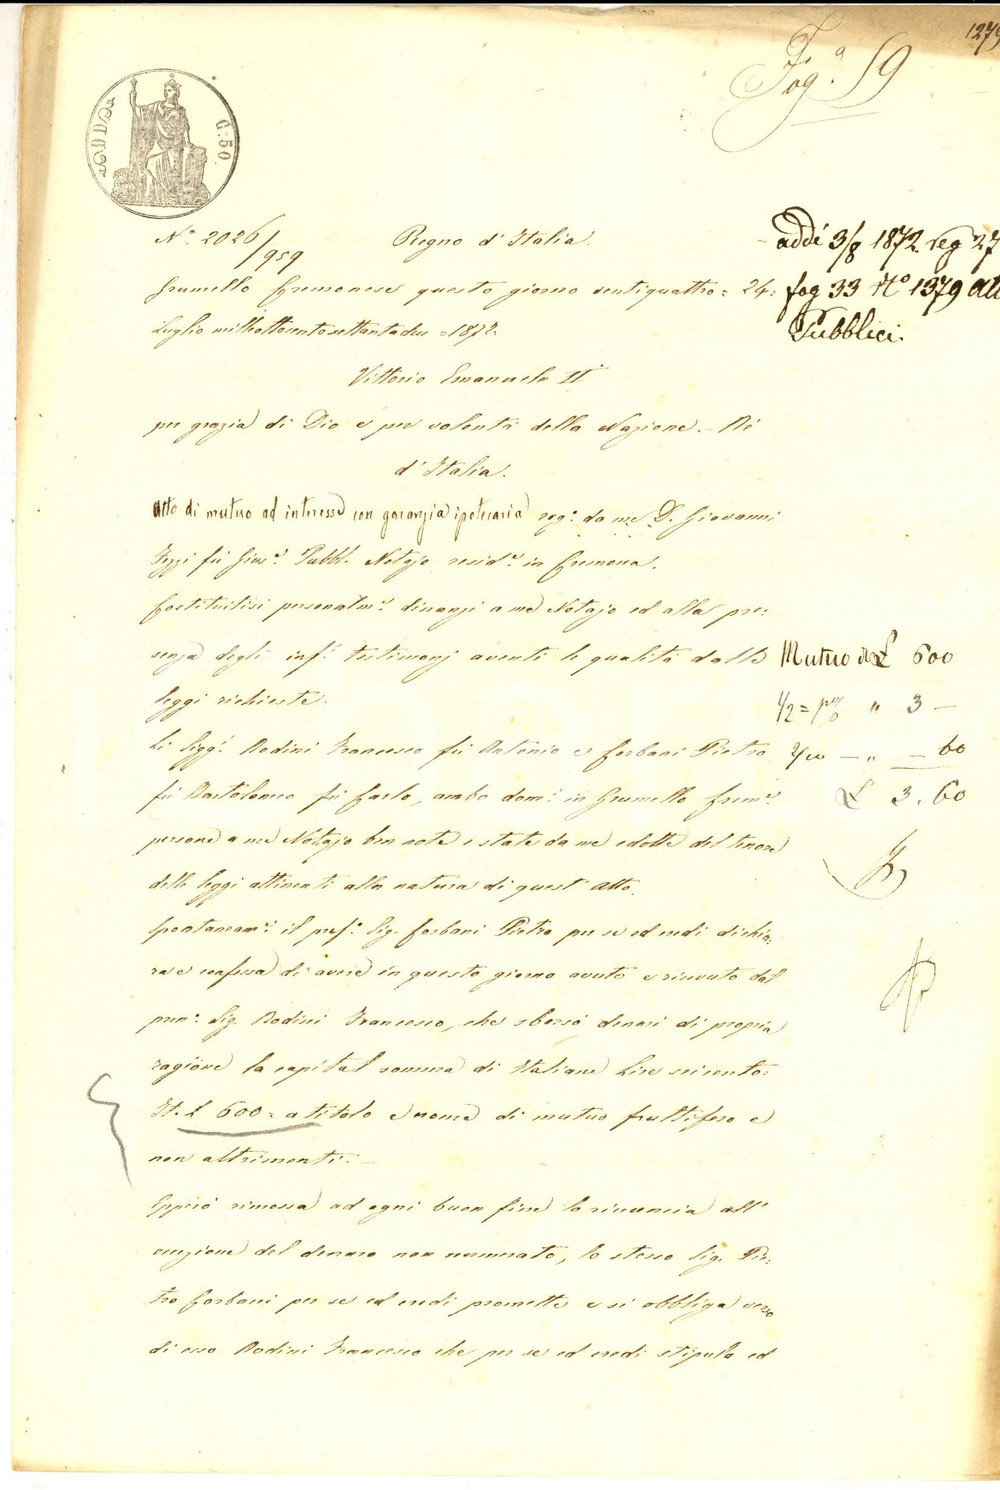 1279
Fog.ª 59
C: 50.
N.º 2026/959 Regno d'Italia.
addì 3/8 1872. reg 27
Grumello Cremonese questo giorno ventiquattro = 24:
fog 33 Nº 1379 atti
Luglio milleottocentosettantadue = 1872.
Pubblici.
Vittorio Emanuele IIº
per grazia di Dio e per volontà della Nazione. Re
d'Italia.
Atto di mutuo ad interesse con garanzia ipotecaria rog.º da me D. Giovanni
fù Gius.e Pubb. Notajo resid.e in Cremona.
Costituitisi personalm.e dinanzi a me Notajo ed alla pre:
senza degli inf.i testimonj aventi le qualità dalle
Mutuo di £ 600
leggi richieste.
1/2 = p% " 3 —
Li Sigg.i Bodini Francesco fù Antonio e Corbani Pietro
— " — 60
fù Bartolomeo fù Carlo, ambo dom.i in Grumello Crem.e
£ 3. 60
persone a me Notajo ben note e state da me edotte del tenore
delle leggi attinenti alla natura di quest'atto.
Spontaneam.e il pref.º Sig. Corbani Pietro per se ed eredi dichia:
ra e confessa di avere in questo giorno avuto e ricevuto dal
pren.º Sig. Bodini Francesco, che sborsò denari di propria
ragione la capital somma di Italiane Lire seicento:
It. £ 600 = a titolo e nome di mutuo fruttifero e
non altrimenti. —
Epperò rimossa ad ogni buon fine la rinuncia all'
eccezione del denaro non numerato, lo stesso Sig. Pie:
tro Corbani per se ed eredi promette e si obbliga verso
di esso Bodini Francesco che per se ed eredi stipula ed